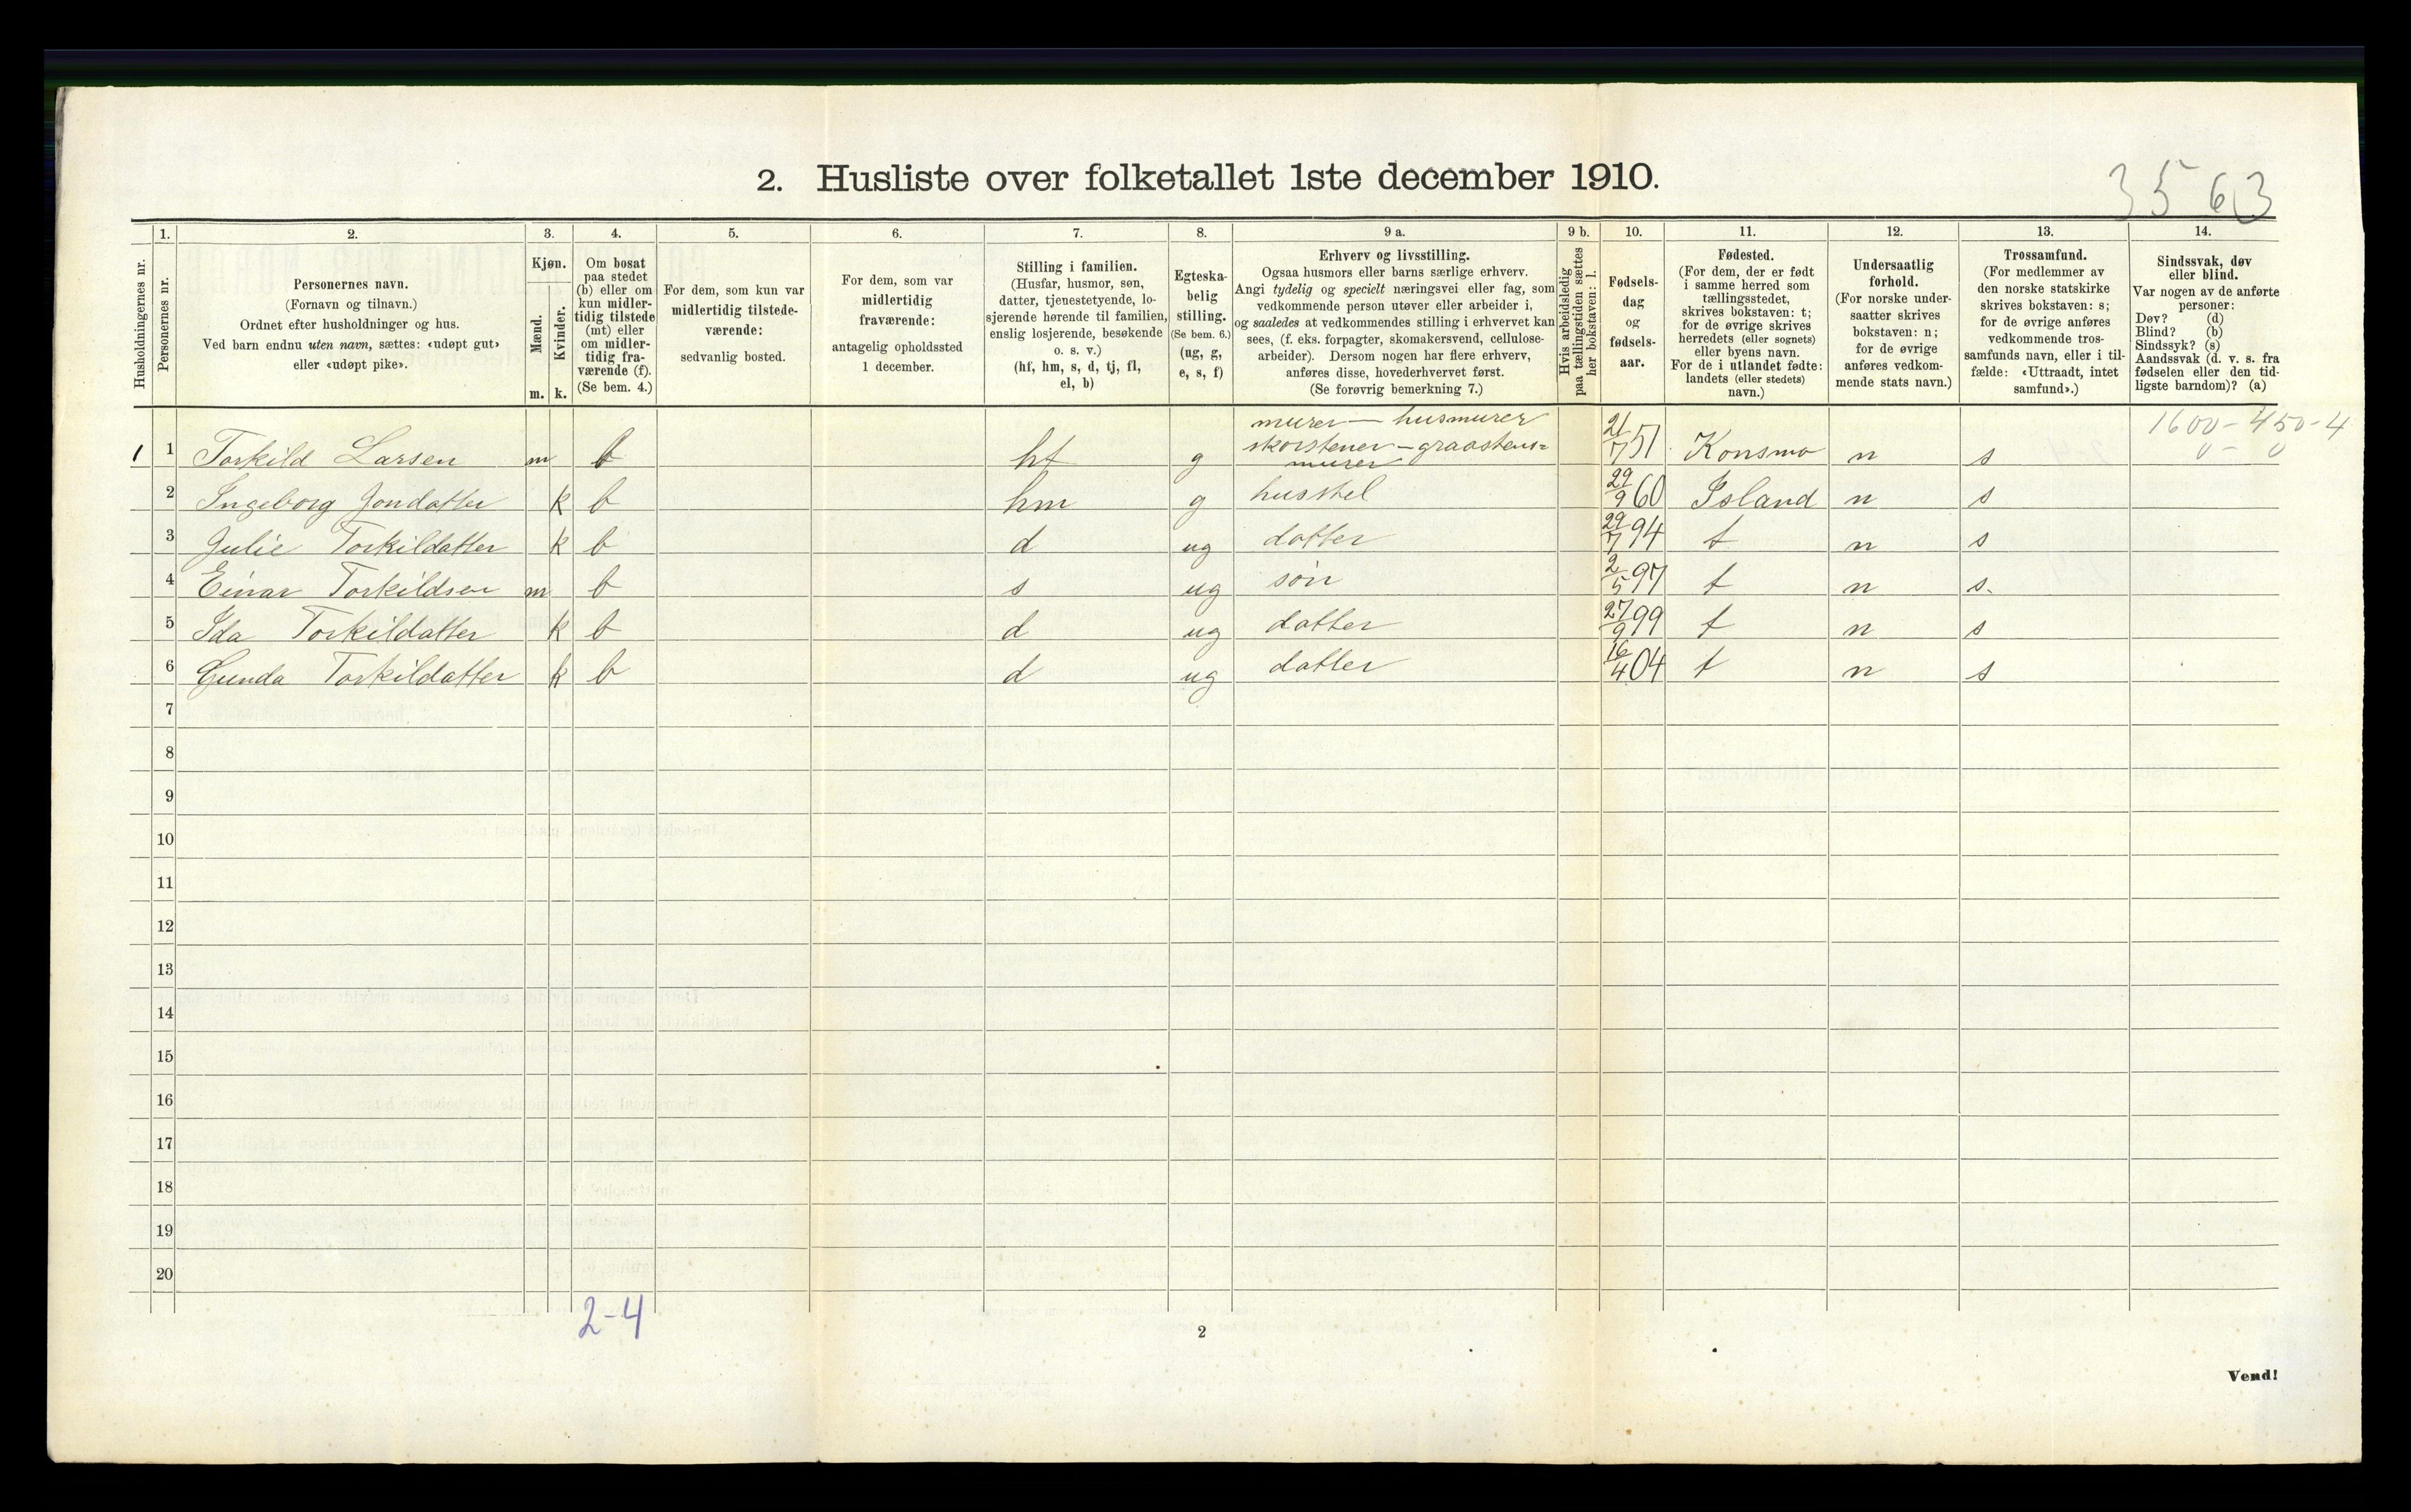 2. Husliste over folketallet 1ste december 1910.
3563
1. 2. 3. 4. 5. 6. 7. 8. 9 a. 9 b. 10. 11. 12. 13. 14.
Husholdningernes nr.
Personernes nr.
Personernes navn.
(Fornavn og tilnavn.)
Ordnet efter husholdninger og hus.
Ved barn endnu uten navn, sættes: «udøpt gut»
eller «udøpt pike».
Kjøn.
Mænd.
Kvinder.
m. k.
Om bosat
paa stedet
(b) eller om
kun midler-
tidig tilstede
(mt) eller
om midler-
tidig fra-
værende (f).
(Se bem. 4.)
For dem, som kun var
midlertidig tilstede-
værende:
sedvanlig bosted.
For dem, som var
midlertidig
fraværende:
antagelig opholdssted
1 december.
Stilling i familien.
(Husfar, husmor, søn,
datter, tjenestetyende, lo-
sjerende hørende til familien,
enslig losjerende, besøkende
o. s. v.)
(hf, hm, s, d, tj, fl,
el, b)
Egteska-
belig
stilling.
(Se bem. 6.)
(ug, g,
e, s, f)
Erhverv og livsstilling.
Ogsaa husmors eller barns særlige erhverv.
Angi tydelig og specielt næringsvei eller fag, som
vedkommende person utøver eller arbeider i,
og saaledes at vedkommendes stilling i erhvervet kan
sees, (f. eks. forpagter, skomakersvend, cellulose-
arbeider). Dersom nogen har flere erhverv,
anføres disse, hovederhvervet først.
(Se forøvrig bemerkning 7.)
Hvis arbeidsledig
paa tællingstiden sættes
her bokstaven: l.
Fødsels-
dag
og
fødsels-
aar.
Fødested.
(For dem, der er født
i samme herred som
tællingsstedet,
skrives bokstaven: t;
for de øvrige skrives
herredets (eller sognets)
eller byens navn.
For de i utlandet fødte:
landets (eller stedets)
navn.)
Undersaatlig
forhold.
(For norske under-
saatter skrives
bokstaven: n;
for de øvrige
anføres vedkom-
mende stats navn.)
Trossamfund.
(For medlemmer av
den norske statskirke
skrives bokstaven: s;
for de øvrige anføres
vedkommende tros-
samfunds navn, eller i til-
fælde: «Uttraadt, intet
samfund».)
Sindssvak, døv
eller blind.
Var nogen av de anførte
personer:
Døv? (d)
Blind? (b)
Sindssyk? (s)
Aandssvak (d. v. s. fra
fødselen eller den tid-
ligste barndom)? (a)
1600 - 450 - 4
0 - 0
murer - husmurer
skorstener - graastens=
murer
1 1 Torkild Larsen m b hf g 21/7 51 Konsmo n s
2 Ingeborg Jondatter k b hm g husstel 29/9 60 Island n s
3 Julie Torkildatter k b d ug datter 29/7 94 t n s
4 Einar Torkildsen m b s ug søn 2/5 97 t n s.
5 Ida Torkildatter k b d ug datter 27/9 99 t n s
6 Gunda Torkildatter k b d ug datter 16/4 04 t n s
7
8
9
10
11
12
13
14
15
16
17
18
19
20
2-4
2
Vend!